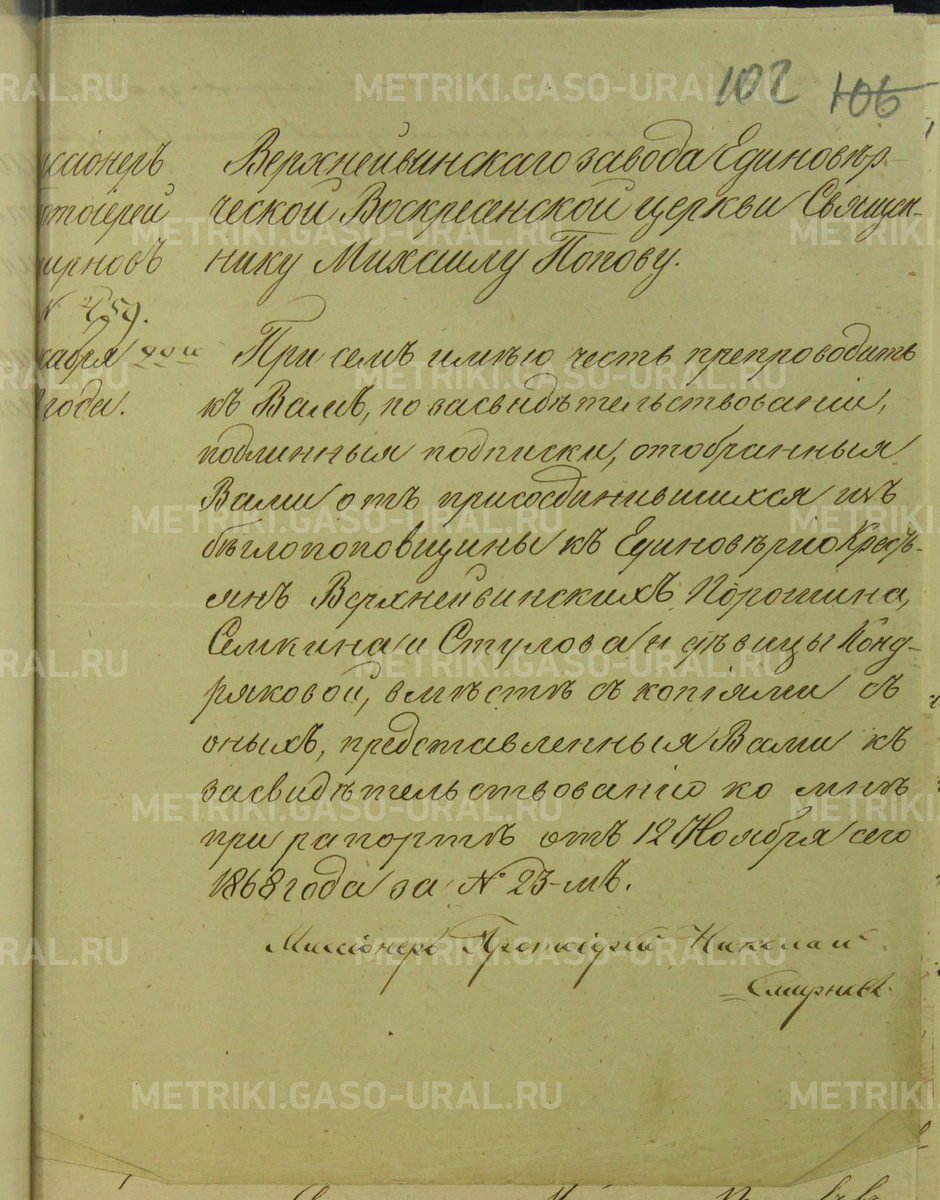 102 106
ссіонеръ
отоіерей
мирновъ
N 459.
кабря
года.
Верхнейвинскаго завода Единовѣр-
ческой Воскресенской церкви Священ-
нику Михаилу Попову.
При семъ имѣю честь препроводить
къ Вамъ, по засвидѣтельствованіи,
подлинныя подписки, отобранныя
Вами отъ присоединившихся изъ
бѣглопоповщины къ Единовѣрію Кресть-
янъ Верхнейвинскихъ Порошина,
Семкина и Стулова и дѣвицы Конд-
ряковой, вмѣстѣ съ копіями съ
оныхъ, представленныя Вами къ
засвидѣтельствованію ко мнѣ
при рапортѣ отъ 12 Ноября сего
1868 года за № 23-мъ.
Миссіонеръ Протоіерей Николай
Смирновъ.
METRIKI.GASO-URAL.RU